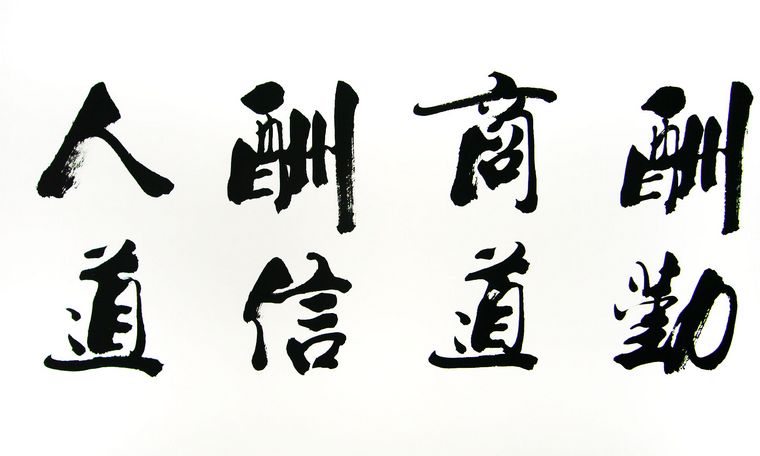 人道
酬信
商道
酬勤